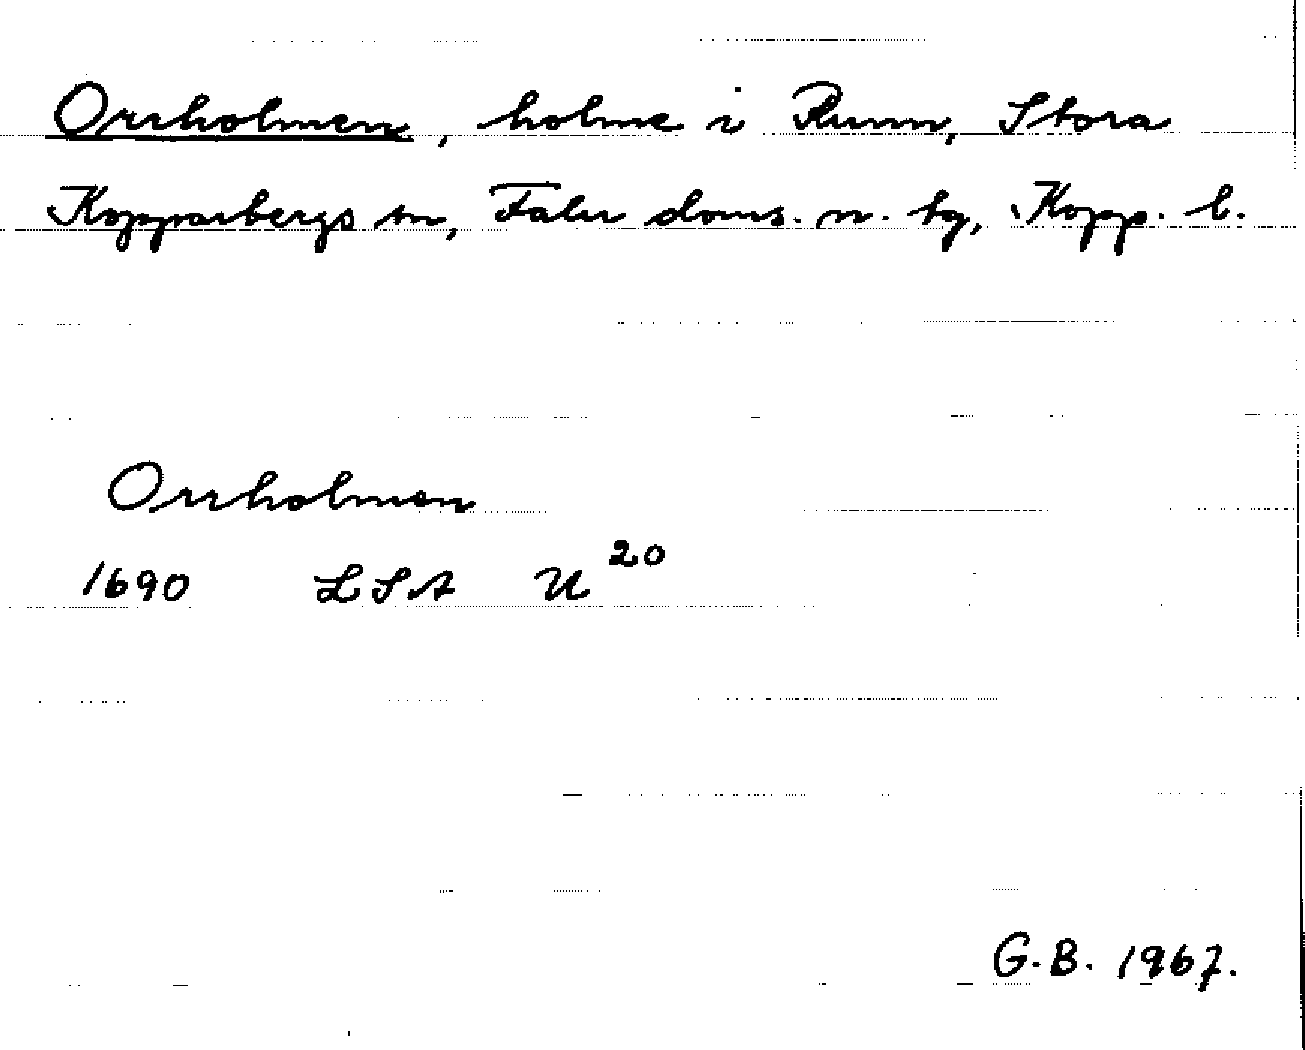 Orrholmen, holme i Runn, Stora
Kopparbergs sn, Falu doms. n. tg, Kopp. l.
Orrholmen
1690 LSA U 20
G.B. 1967.